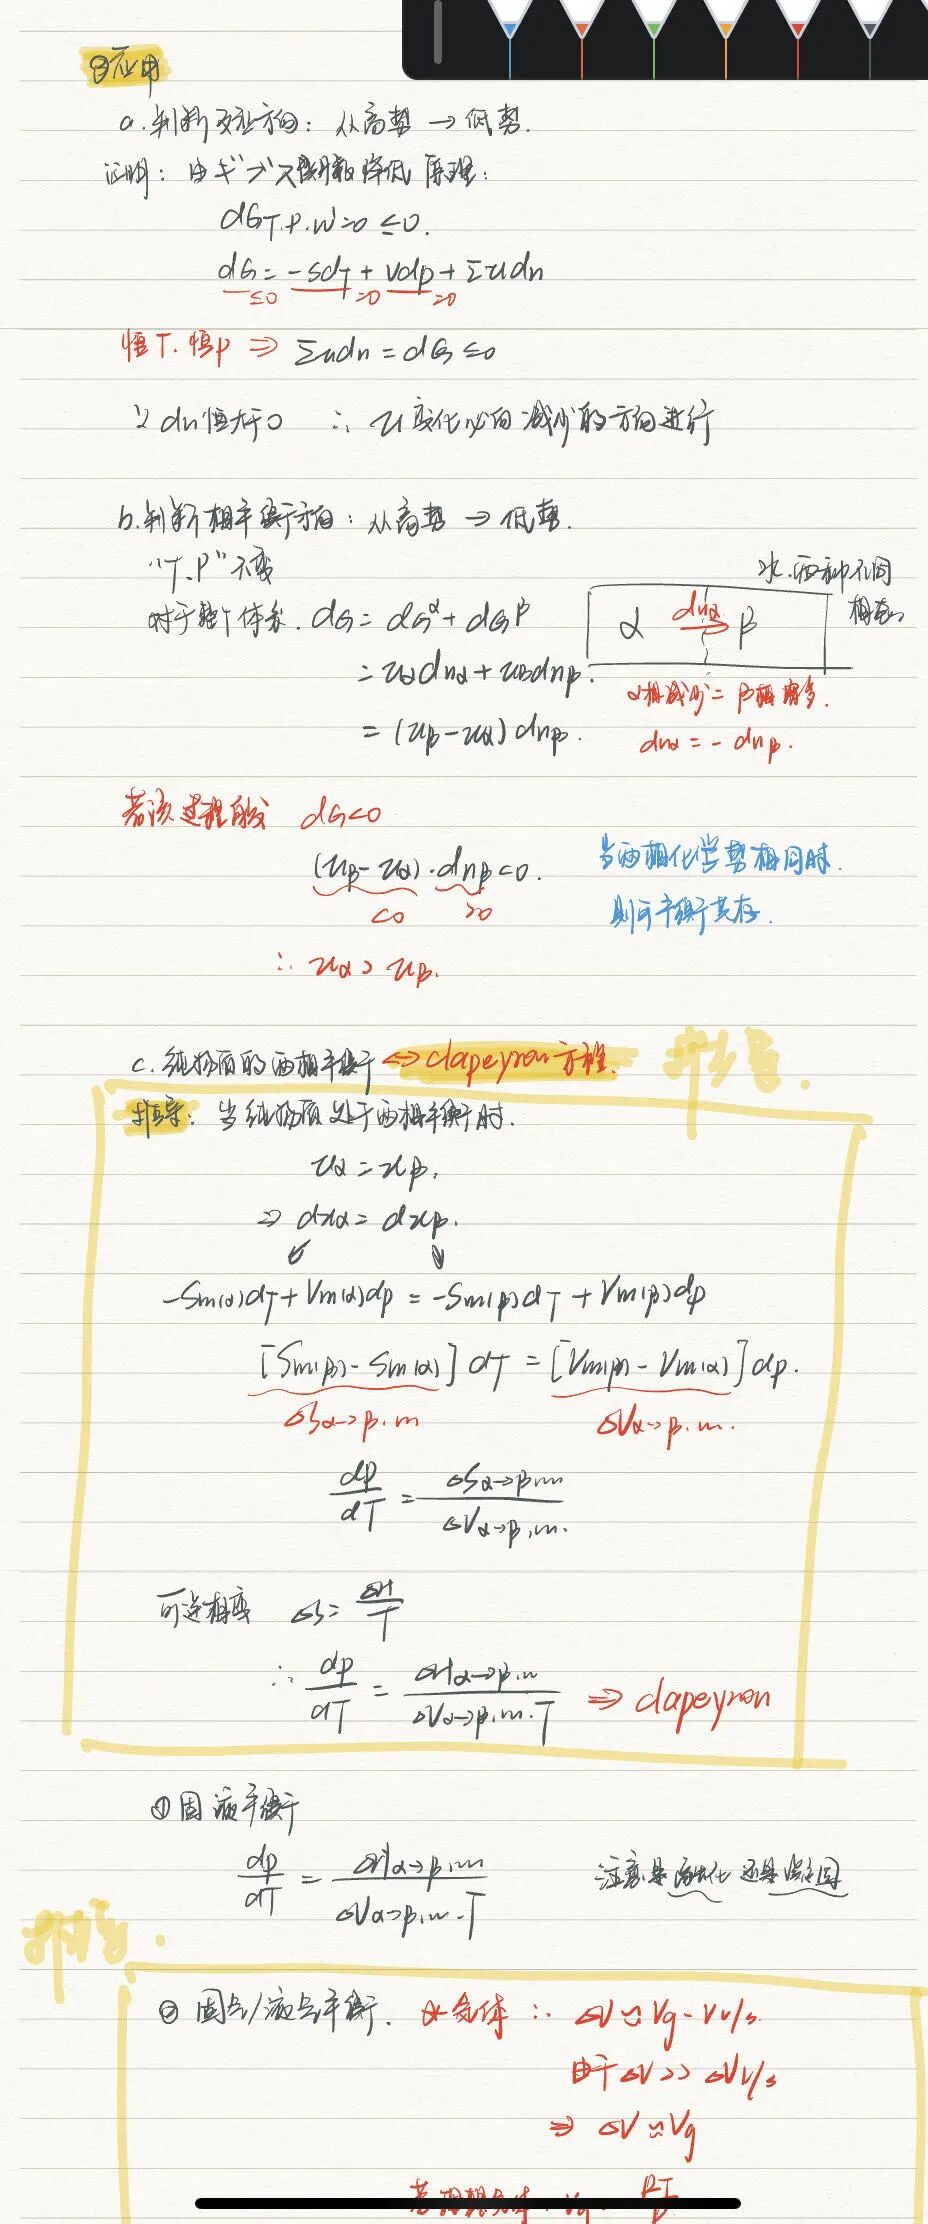 ③应用
a.判断反应方向：从高势 → 低势.
证明：由ギブス函数降低原理：
dG T.P.W'=0 ≤0.
dG = -SdT + Vdp + Σudn
≤0 =0 =0
恒T.恒p ⇒ Σudn = dG ≤0
∵ dn恒大于0 ∴ u变化必向减少的方向进行
b.判断相平衡方向：从高势 → 低势.
"T.P"不变
水.两种不同
相态
对于整个体系. dG = dG^α + dG^β
α dnα → β
= uαdnα + uβdnβ.
α相减少 = β相增多.
= (uβ-uα)dnβ.
dnα = - dnβ.
若该过程自发 dG<0
(uβ-uα)·dnβ<0.
<0 >0
当两相化学势相同时.
则可平衡共存.
∴ uα > uβ.
c.纯物质的两相平衡 ⇔ clapeyron方程.
推导.
推导：当纯物质处于两相平衡时.
uα = uβ.
⇒ duα = duβ.
-Sm(α)dT + Vm(α)dp = -Sm(β)dT + Vm(β)dp
[Sm(β) - Sm(α)] dT = [Vm(β) - Vm(α)] dp.
ΔSα→β.m ΔVα→β.m.
dp/dT = ΔSα→β.m / ΔVα→β.m.
可逆相变 ΔS = ΔH/T
∴ dp/dT = ΔHα→β.m / ΔVα→β.m.T ⇒ clapeyron
①固液平衡
dp/dT = ΔHα→β.m / ΔVα→β.m.T
注意是液化还是凝固
推导.
② 固气/液气平衡. 气体 ∴ ΔV ≈ Vg - Vl/s
由于ΔV >> ΔVl/s
⇒ ΔV ≈ Vg